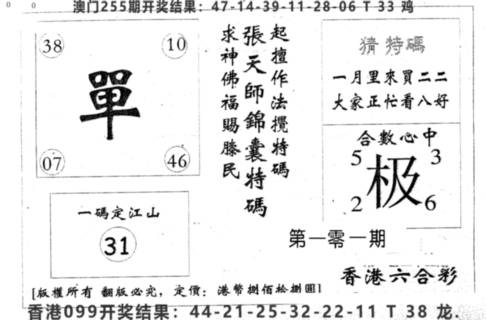 澳门255期开奖结果：47-14-39-11-28-06 T 33 鸡
38
10
單
07
46
一碼定江山
31
起擅作法攪特碼
張天師錦囊特碼
求神佛福賜滕民
猜特碼
一月里來買二二
大家正忙看八好
合數心中
5
3
极
2
6
第一零一期
香港六合彩
[版權所有 翻版必究，定價：港幣捌佰拾捌圓]
香港099开奖结果：44-21-25-32-22-11 T 38 龙.